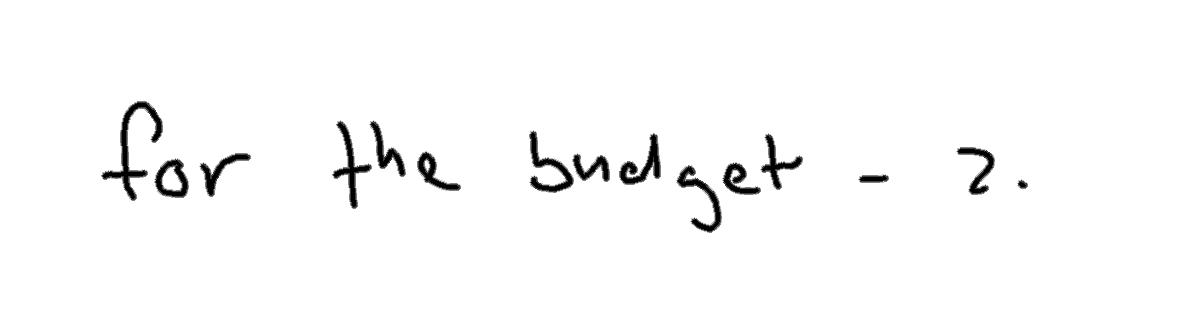 for the budget - 2.